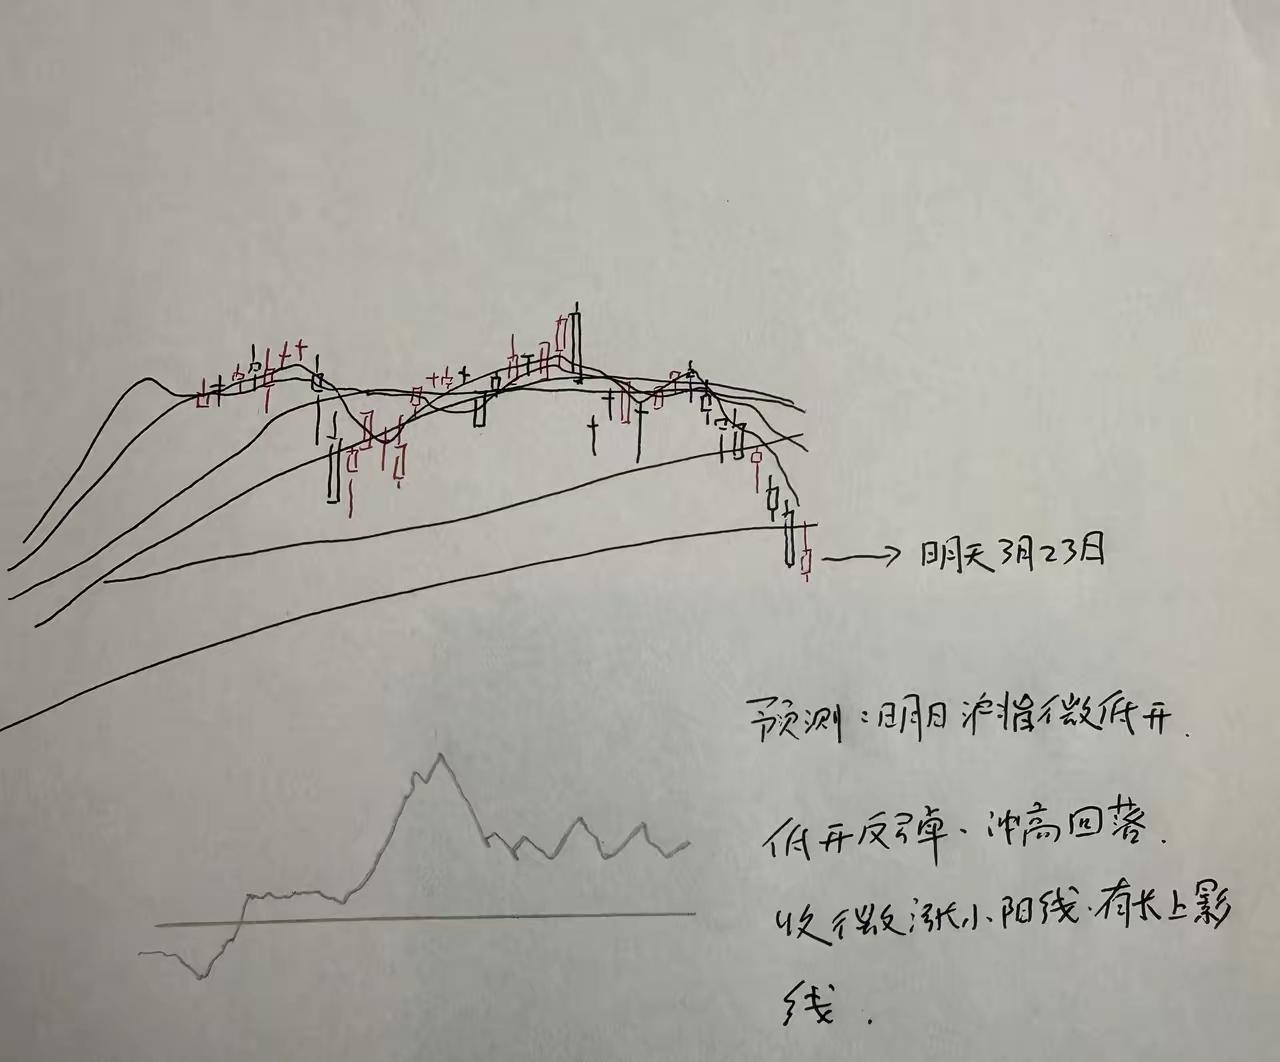 明天3月23日
预测：明日沪指微低开.
低开反弹、冲高回落.
收微涨小阳线.有长上影
线.